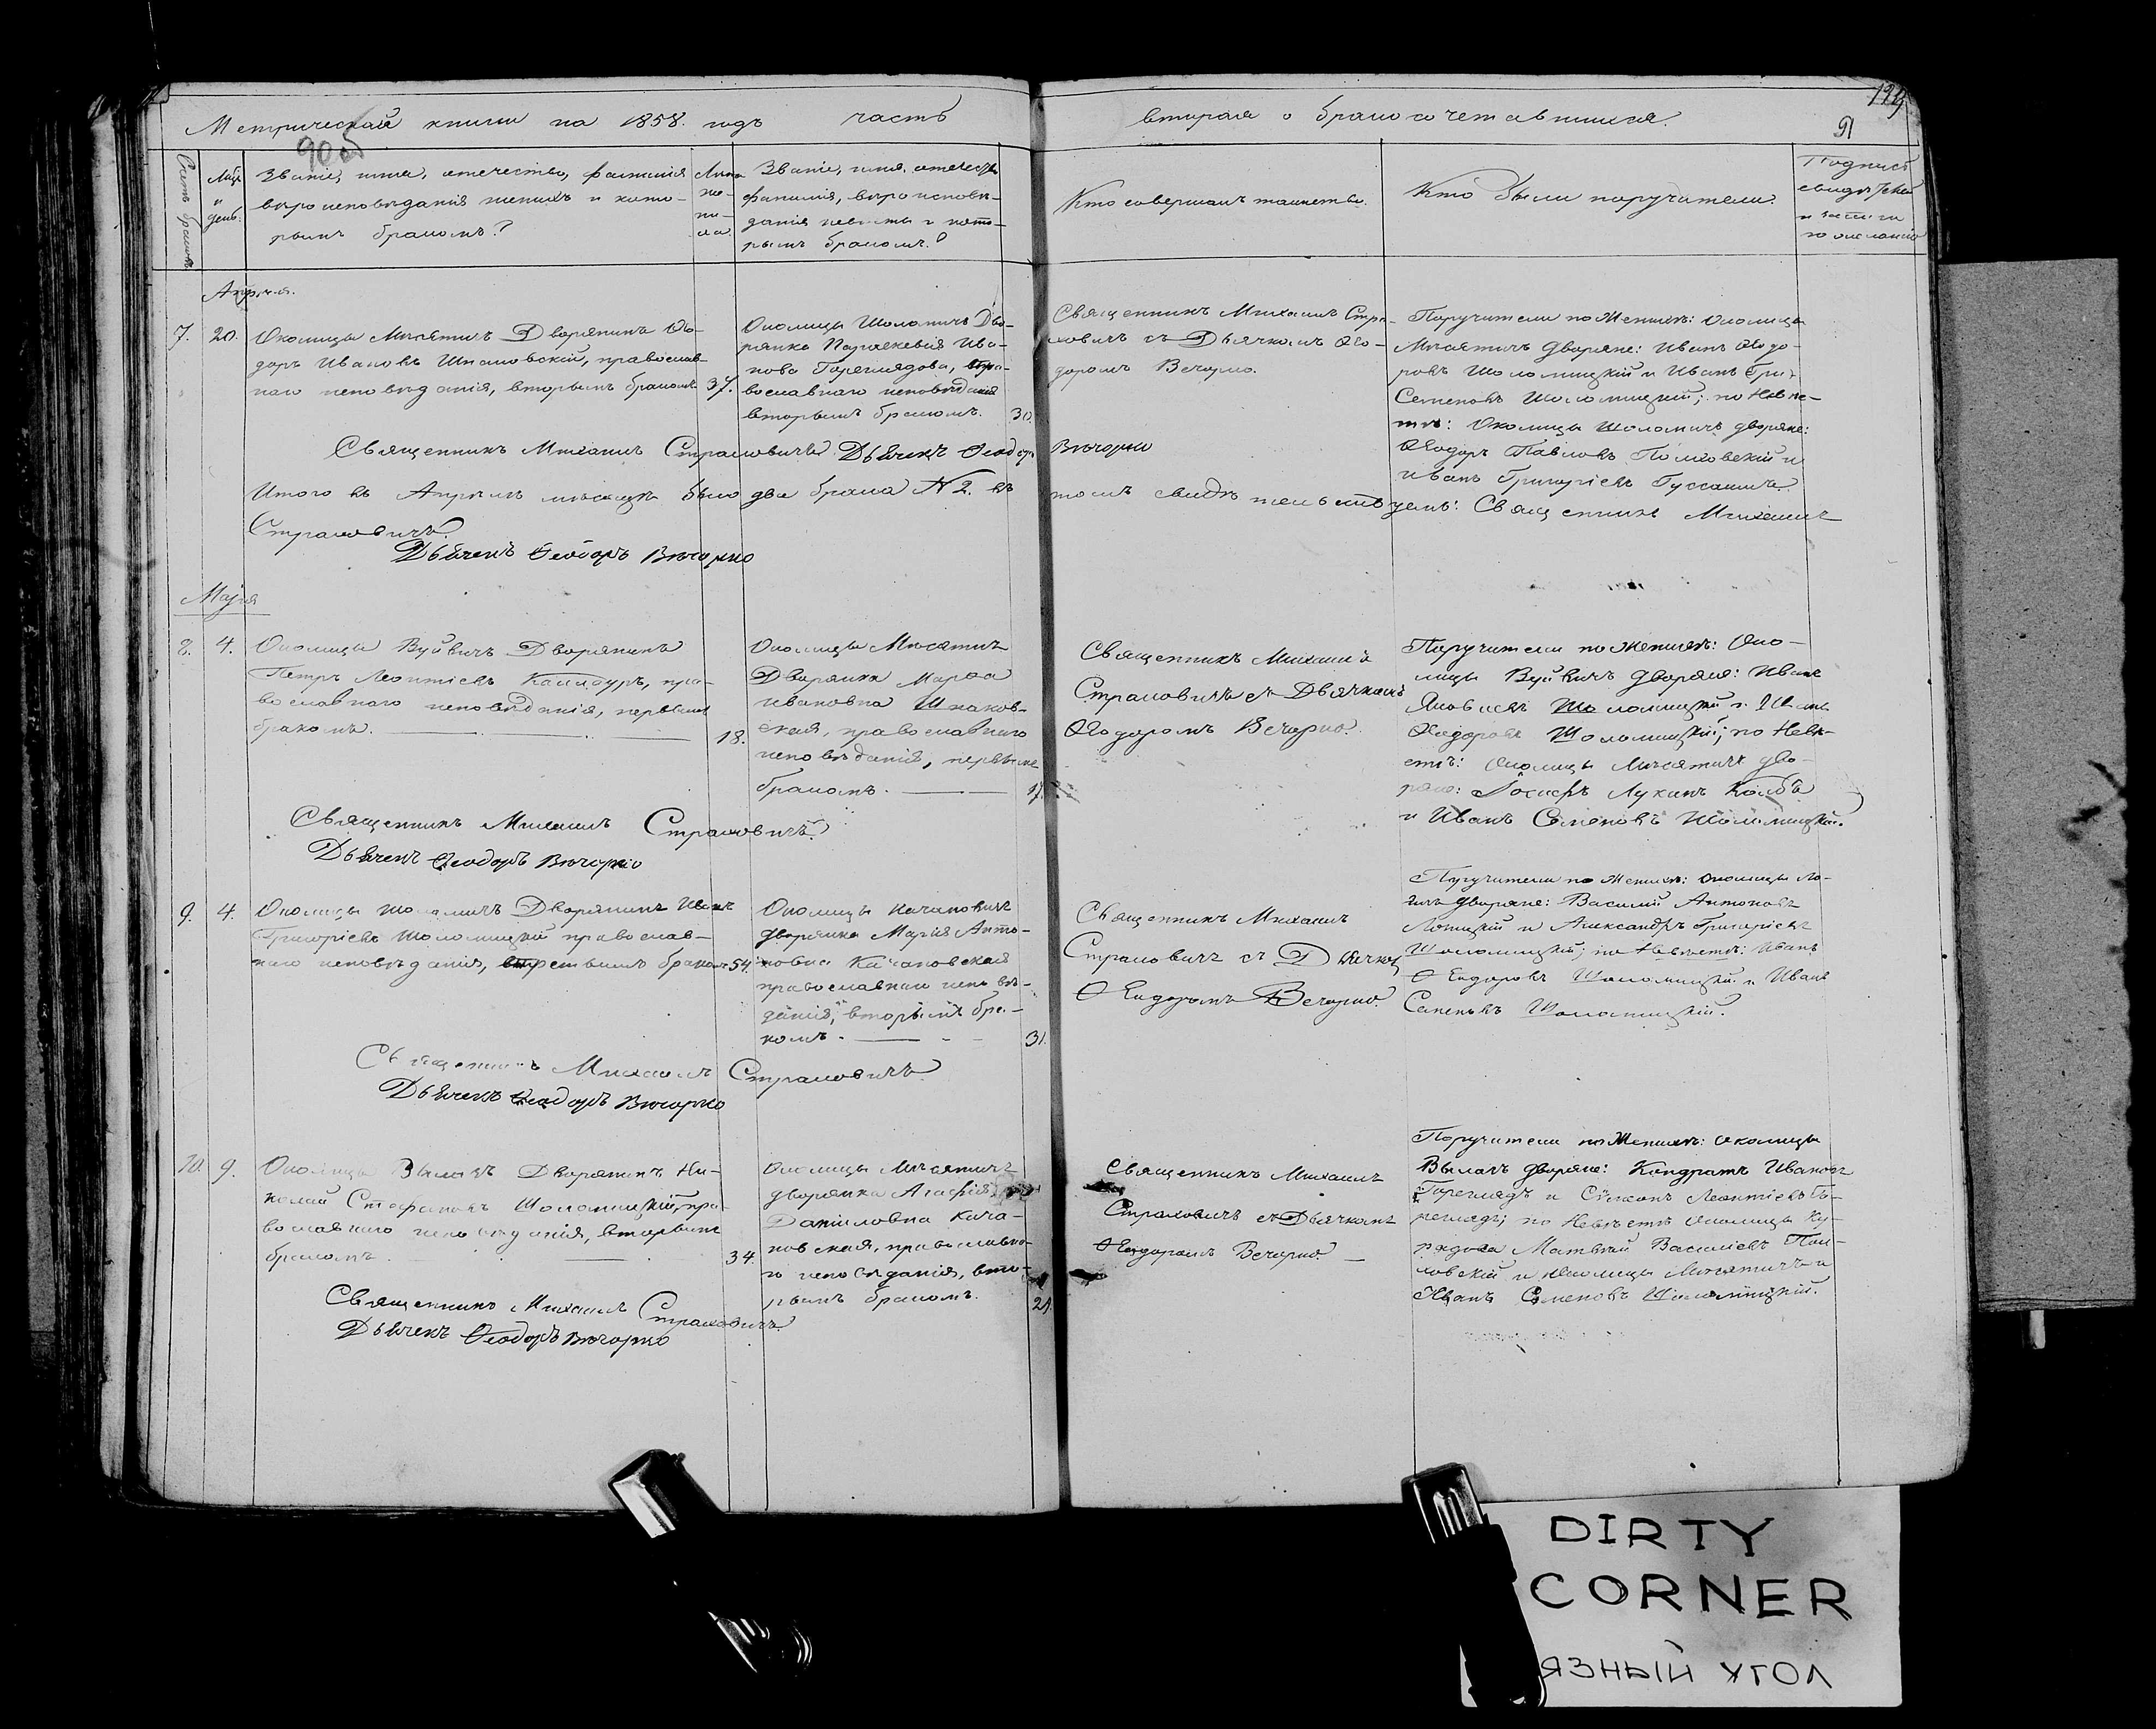 Метрической книги на 1858. годъ часть вторая о бракосочетавшихся.
90 об
129
91
Счетъ браковъ
Мѣс. и день.
Званіе, имя, отечество, фамилія
вѣроисповѣданія жениха и кото-
рымъ бракомъ?
Лѣта
же-
ни-
ха.
Званіе, имя, отечество
фамилія, вѣроисповѣ-
данія невѣсты и кото-
рымъ бракомъ?
Кто совершалъ таинство.
Кто были поручители.
Подпись
свидѣтелей
записи
по желанію
Апрѣля.
7. 20.
Околицы Мисятичъ Дворянинъ Ѳео-
доръ Ивановъ Шпаковскій, православ-
наго исповѣданія, вторымъ бракомъ 37.
Околицы Шоломичъ Дво-
рянка Параскевія Ива-
нова Гореглядова, пра-
вославнаго исповѣданія
вторымъ бракомъ. 30.
Священникъ Михаилъ Стра-
ховичъ съ Дьячкомъ Ѳео-
доромъ Вечорко.
Поручители по Женихѣ: Околицы
Мисятичъ дворяне: Иванъ Ѳеодо-
ровъ Шоломицкій и Иванъ
Семеновъ Шоломицкій; по Невѣ-
стѣ: Околицы Шоломичъ дворяне:
Ѳеодоръ Павловъ и
Иванъ Григорьевъ
Священникъ Михаилъ Страховичъ Дьячекъ Ѳеодоръ Вечорко
Итого въ Апрѣлѣ мѣсяцѣ было два брака № 2. въ томъ свидѣтельствуемъ: Священникъ Михаилъ
Страховичъ.
Дьячекъ Ѳеодоръ Вечорко
Маія
8. 4.
Околицы Вуйвичъ Дворянинъ
Петръ Леонтіевъ Каплауръ, пра-
вославнаго исповѣданія, первымъ
бракомъ. 18.
Околицы Мисятичъ
Дворянка Марѳа
Ивановна Шпаков-
ская, православнаго
исповѣданія, первымъ
бракомъ. 17.
Священникъ Михаилъ
Страховичъ съ Дьячкомъ
Ѳеодоромъ Вечорко.
Поручители по Женихѣ: Око-
лицы Вуйвичъ дворяне: Иванъ
Яковлевъ Шоломицкій и Иванъ
Ѳеодоровъ Шоломицкій; по Невѣ-
стѣ: Околицы Мисятичъ дво-
ряне: Іосифъ Лукинъ Колб
и Иванъ Семеновъ Шоломицкій.
Священникъ Михаилъ Страховичъ
Дьячекъ Ѳеодоръ Вечорко
9. 4.
Околицы Шоломичъ Дворянинъ Иванъ
Григоріевъ Шоломицкій православ-
наго исповѣданія, третьимъ бракомъ 54.
Околицы Качановичъ
дворянка Марія Анто-
новна Качановская
православнаго исповѣ-
данія, вторымъ бра-
комъ. 31.
Священникъ Михаилъ
Страховичъ съ Дьячком
Ѳеодоромъ Вечорко.
Поручители по Женихѣ: Околицы Ло-
дворяне: Василій Антоновъ
и Александръ Григоріевъ
Шоломицкій; по Невѣстѣ: Иванъ
Ѳеодоровъ Шоломицкій и Иванъ
Семеновъ Шоломицкій.
Священникъ Михаилъ Страховичъ
Дьячекъ Ѳеодоръ Вечорко
10. 9.
Околицы Вылазъ Дворянинъ Ни-
колай Стефановъ Шоломицкій, пра-
вославнаго исповѣданія, вторымъ
бракомъ. 34.
Околицы Мисятичъ
дворянка Агафія
Даніиловна Кача-
новская, православна-
го исповѣданія, вто-
рымъ бракомъ. 21.
Священникъ Михаилъ
Страховичъ съ Дьячкомъ
Ѳеодоромъ Вечорко.
Поручители по Женихѣ: Околицы
Вылазъ дворяне: Кондратъ Ивановъ
Гореглядъ и Симонъ Леонтіевъ Го-
реглядъ; по Невѣстѣ Околицы Ку-
Матвѣй Василіевъ Пал-
ховскій и Околицы Мисятичъ
Иванъ Семеновъ Шоломицкій.
Священникъ Михаилъ Страховичъ
Дьячекъ Ѳеодоръ Вечорко
DIRTY
CORNER
ЯЗНЫЙ УГОЛ